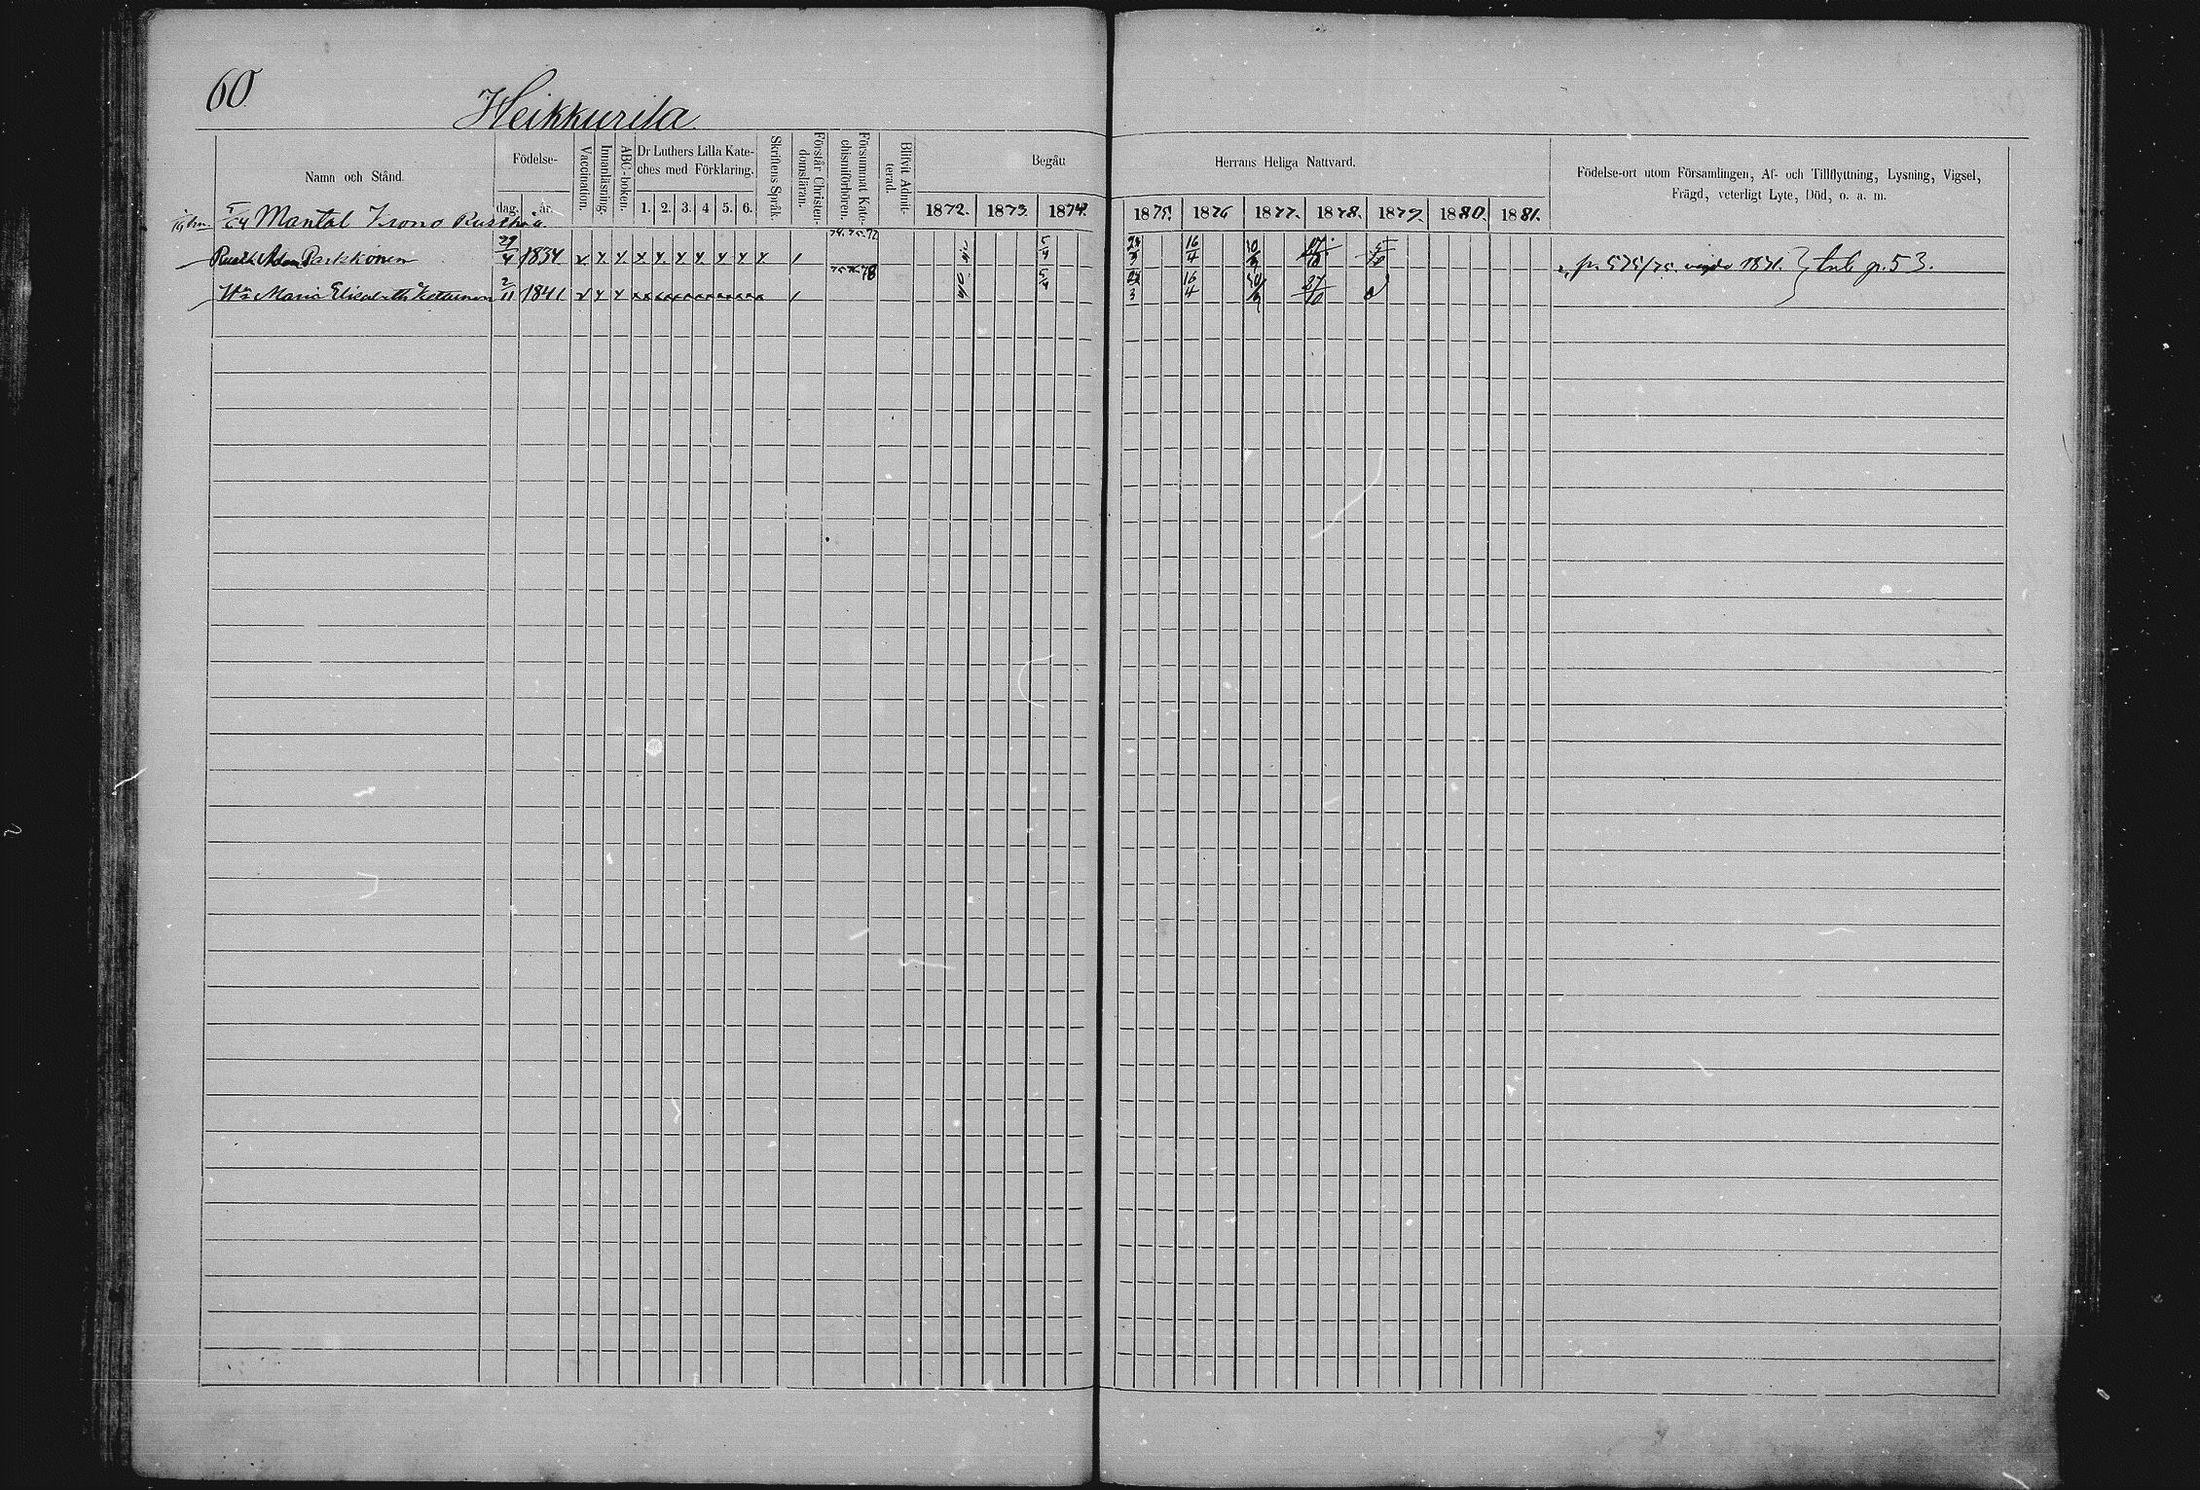 60
Heikkurila
Namn och Stånd.
Födelse-
dag. år.
Vaccination.
Innanläsning.
ABC-boken.
Dr Luthers Lilla Kate-
ches med Förklaring.
1. 2. 3. 4 5. 6.
Skriftens Språk.
Förstår Christen-
domsläran.
Försummat Kate-
chismiförhören.
Blifvit Admit-
terad.
Begått Herrans Heliga Nattvard.
1872. 1873. 1874. 1875. 1876 1877. 1878. 1879. 1880. 1881.
Födelse-ort utom Församlingen, Af- och Tillflyttning, Lysning, Vigsel,
Frägd, veterligt Lyte, Död, o. a. m.
5/24 Mantal Krono Rusthåll
Adam Parkkonen 29/4 1834 v. x x x x x x x x x 1 74. 75. 72 5/4 16/4 p. 575/75. 1871. } p. 53.
Maria Elisabeth Kettunen 2/11 1841 v x x 1 78 5/4 16/4 27/10